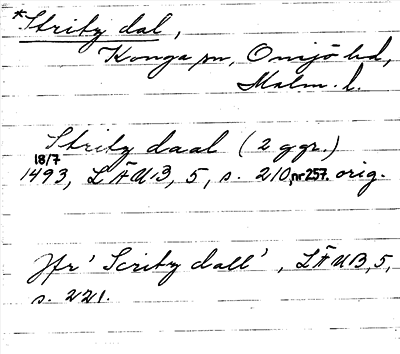 *Strity dal,
Konga sn, Onsjö hd,
Malm. l.
Strity daal (2 ggr.)
18/7
1493, LÄUB, 5, s. 210, nr 257. orig.
Jfr 'Scrity dall', LÄUB, 5,
s. 221.